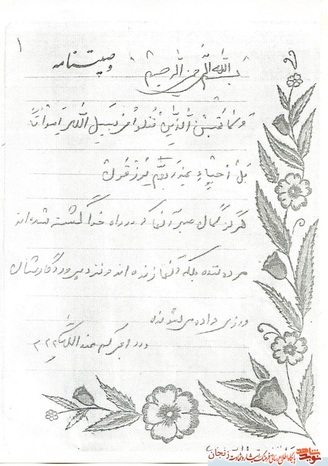 ۱
بسم الله الرحمن الرحیم
وصیتنامه
وَلا تَحسَبَنَّ الَّذینَ قُتِلوا فی سَبیلِ اللهِ اَمواتاً
بَل اَحیاءٌ عِندَ رَبِّهِم یُرزَقونَ
هرگز گمان مبر آنها که در راه خدا کشته شده اند
مرده شده بلکه آنها زنده اند و نزد پروردگارشان
روزی داده می شوند